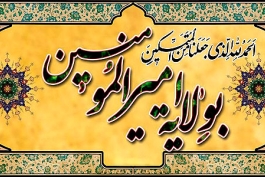 الحمد لله الذی جعلنا من المتمسکین
بولایة امیر المؤمنین